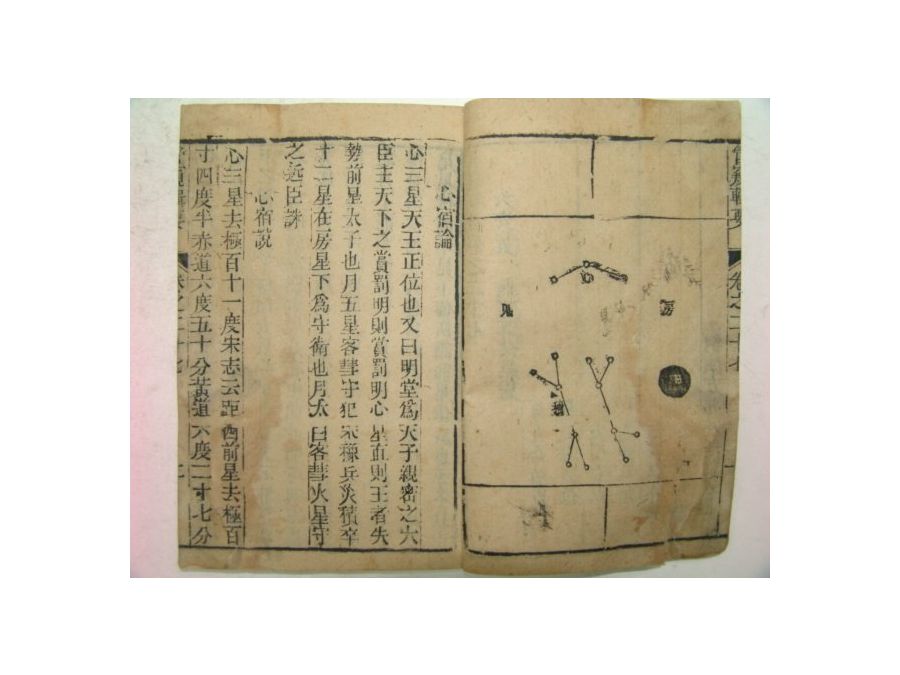 管窺輯要 卷之二十七
房
心
心宿論
心三星天王正位也又曰明堂爲天子親密之六
臣主天下之賞罰明則賞罰明心星直則王者失
勢前星太子也月五星客彗守犯兵災積卒
十二星在房星下爲守衛也月太白客彗火星守
之近臣誅
心宿說
心三星去極百十一度宋志云距西前星去極百
十四度半赤道六度五十分黃道六度二十七分
卷之二十七